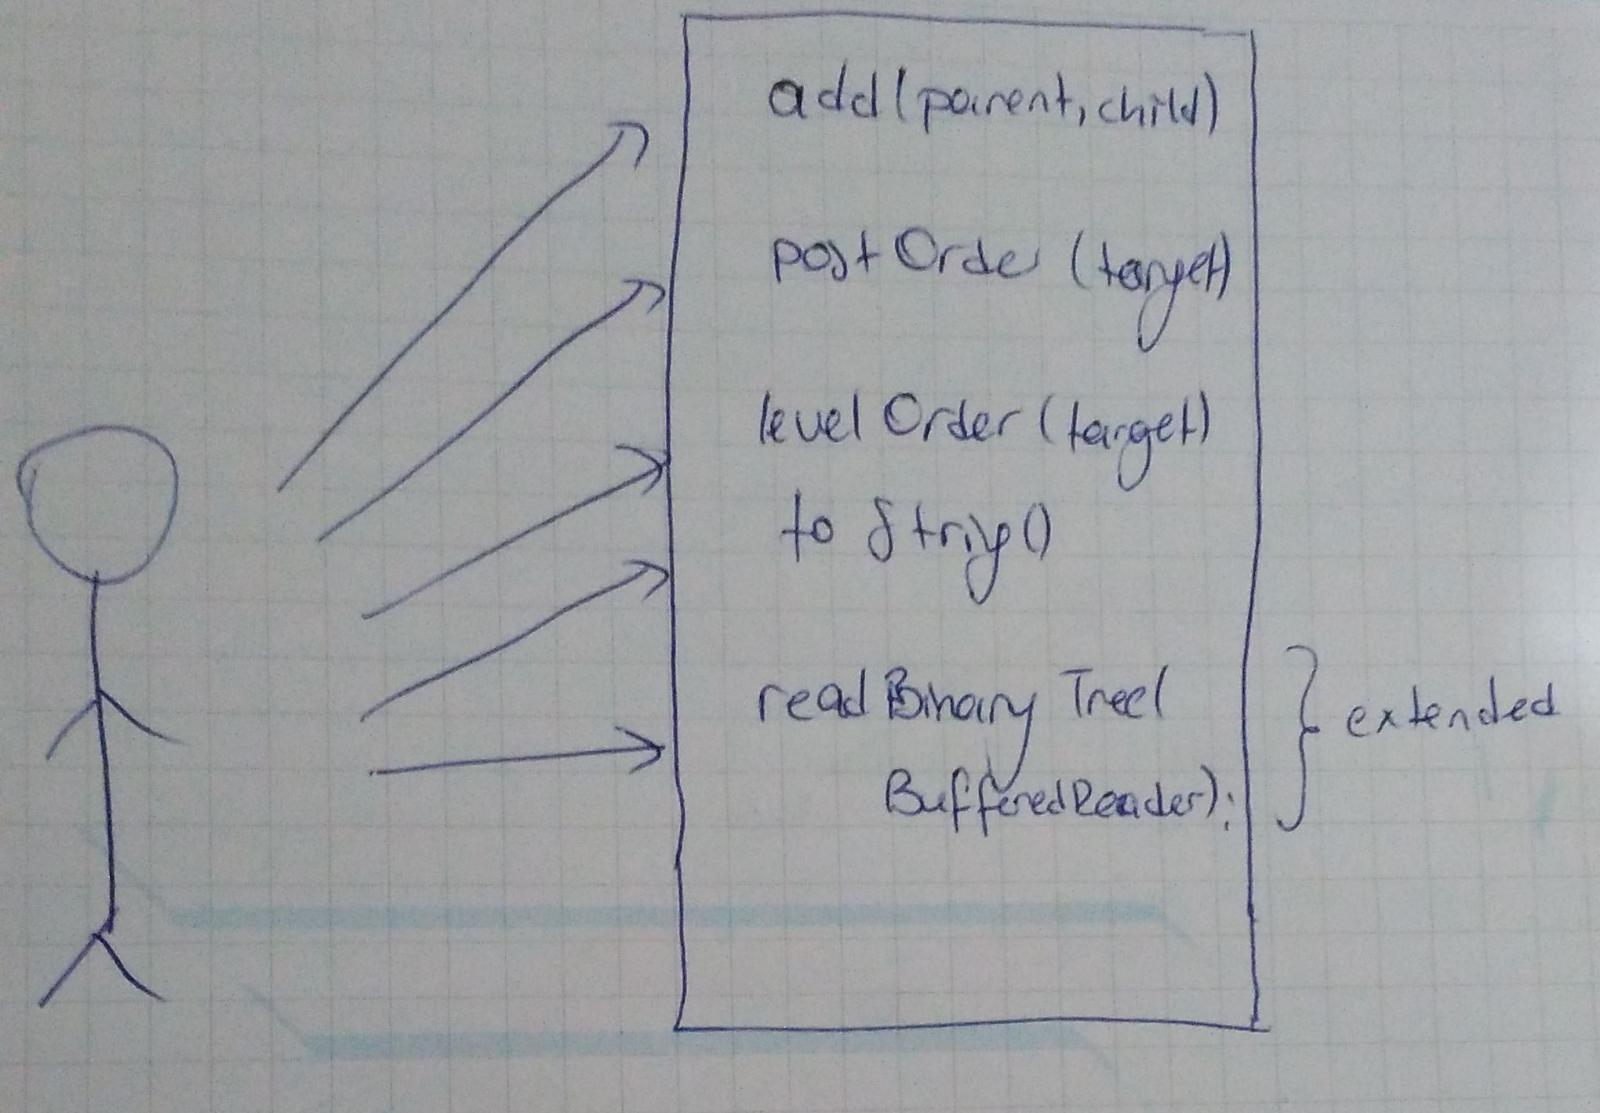 add(parent, child)
postOrder (target)
levelOrder (target)
toString()
readBinaryTree(
BufferedReader);
extended